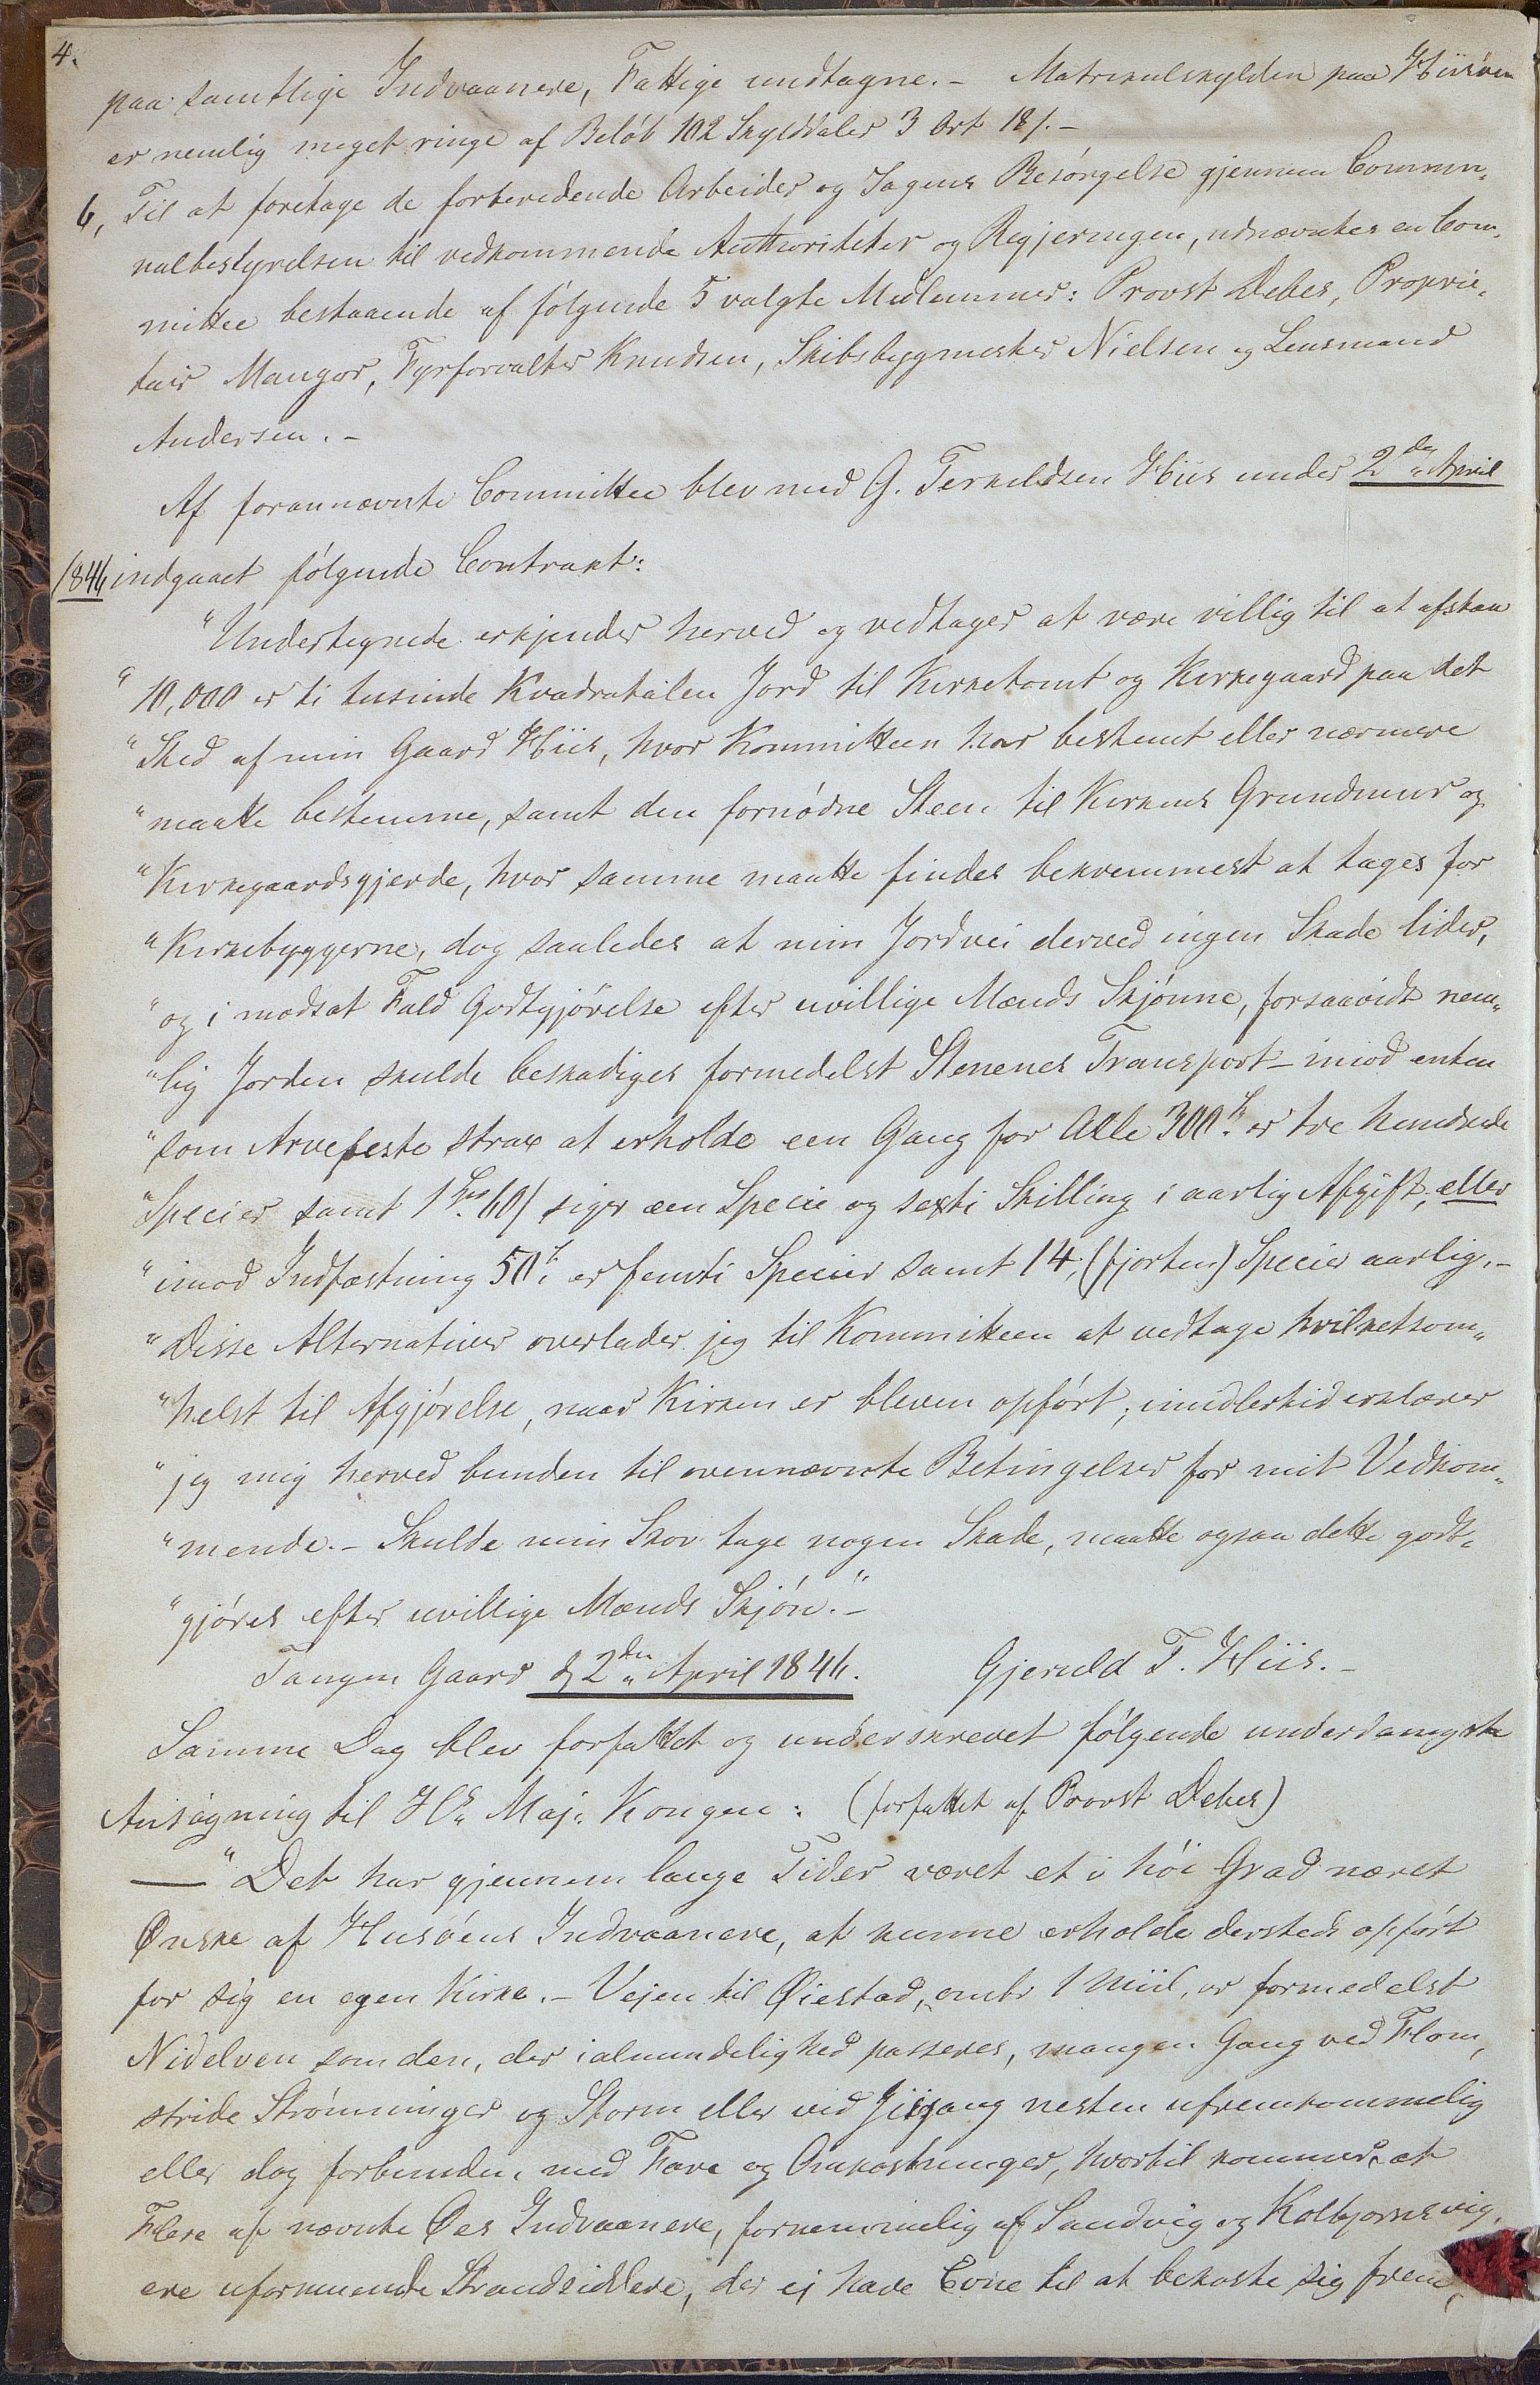 4.
paa samtlige Indvaanere, Fattige undtagne. - Matrikulskylden paa Hiisöen
er nemlig meget ringe af Beløb 102 Skylddaler 3 Ort 18/. -
6, Til at foretage de forberedende Arbeider og Sagens Besørgelse gjennem Commu-
nalbestyrelsen til vedkommende Authoriteter og Regjeringen, udnævntes en Com-
mittee bestaaende af følgende 5 valgte Medlemmer: Provst Debes, Proprie-
tair Mangor, Fyrforvalter Knudsen, Skibsbygmester Nielsen og Lensmand
Andersen. -
Af forannævnte Committee blev med G. Terkeldsen Hiis under 2den April
1846 indgaaet følgende Contrakt:
"Undertegnede erkjender herved og vedtager at være villig til at afstaa
" 10,000 er ti tusinde Kvadratalen Jord til Kirketomt og Kirkegaard paa det
" Sted af min Gaard Hiis, hvor Kommitteen har bestemt eller nærmere
" maatte bestemme, samt den fornødne Steen til Kirkens Grundmur og
" Kirkegaardsgjerde, hvor samme maatte findes bekvemmest at tages for
" Kirkebyggerne, dog saaledes at min Jordvei derved ingen Skade lider,
" og i modsat Fald Godtgjørelse efter uvillige Mænds Skjønne, forsaavidt nem-
" lig Jorden skulde beskadiges formedelst Stenenes Transport - imod enten
" som Arvefeste strax at erholde een Gang for Alle 300 Sp. er tre hundrede
" Species samt 1 Sp. 60/ siger een Specie og sexti Skilling i aarlig Afgift; eller
" imod Indfæstning 50 Sp. er femti Species samt 14, (fjorten) Specier aarlig. -
" Disse Alternativer overlader jeg til Kommitteen at vedtage hvilketsom-
" helst til Afgjørelse, naar Kirken er bleven opført; imidlertid erklærer
" jeg mig herved bunden til ovennævnte Betingelser for mit Vedkom-
" mende. - Skulde min Skov tage nogen Skade, maatte ogsaa dette godt-
" gjøres efter uvillige Mænds Skjøn." -
Tangen Gaard d. 2den April 1846. Gjeruld T. Hiis. -
Samme Dag blev forfattet og underskrevet følgende underdanigste
Ansøgning til Hs. Maj. Kongen: (forfattet af Provst Debes)
— "Det har gjennem lange Tider været et i høi Grad næret
Ønske af Hisøens Indvaanere, at kunne erholde dersteds opført
for sig en egen Kirke. - Vejen til Øiestad, omtr 1 Miil, er formedelst
Nidelven som den, der i almindelighed passeres, mangen Gang ved Flom,
stride Strømninger og Storm eller ved Iisgang nesten ufremkommelig
eller dog forbunden med Fare og Omkostninger, hvortil kommer, at
Flere af nævnte Øes Indvaanere, fornemmelig af Sandvig og Kolbjørnsvig,
ere uformuende Strandsiddere, der ej have Evne til at bekoste sig frem,